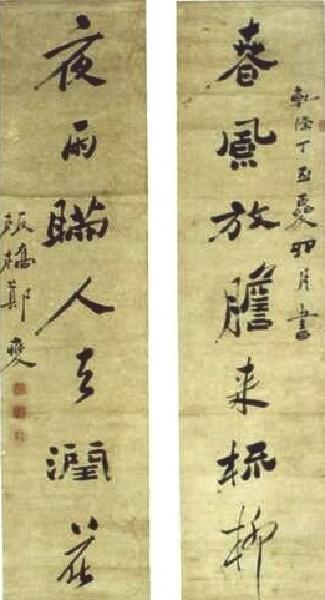 春風放膽来梳柳
乾隆丁月書
夜雨瞞人去潤花
板橋鄭燮